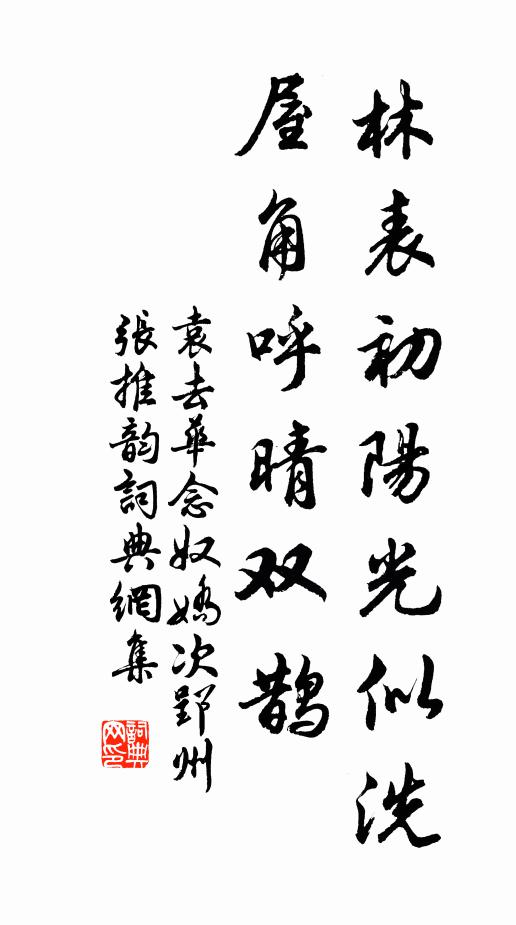 林表初陽光似洗
屋角呼晴双鹊
袁去華念奴嬌次郢州
張推韵詞典網集
詞典
网印